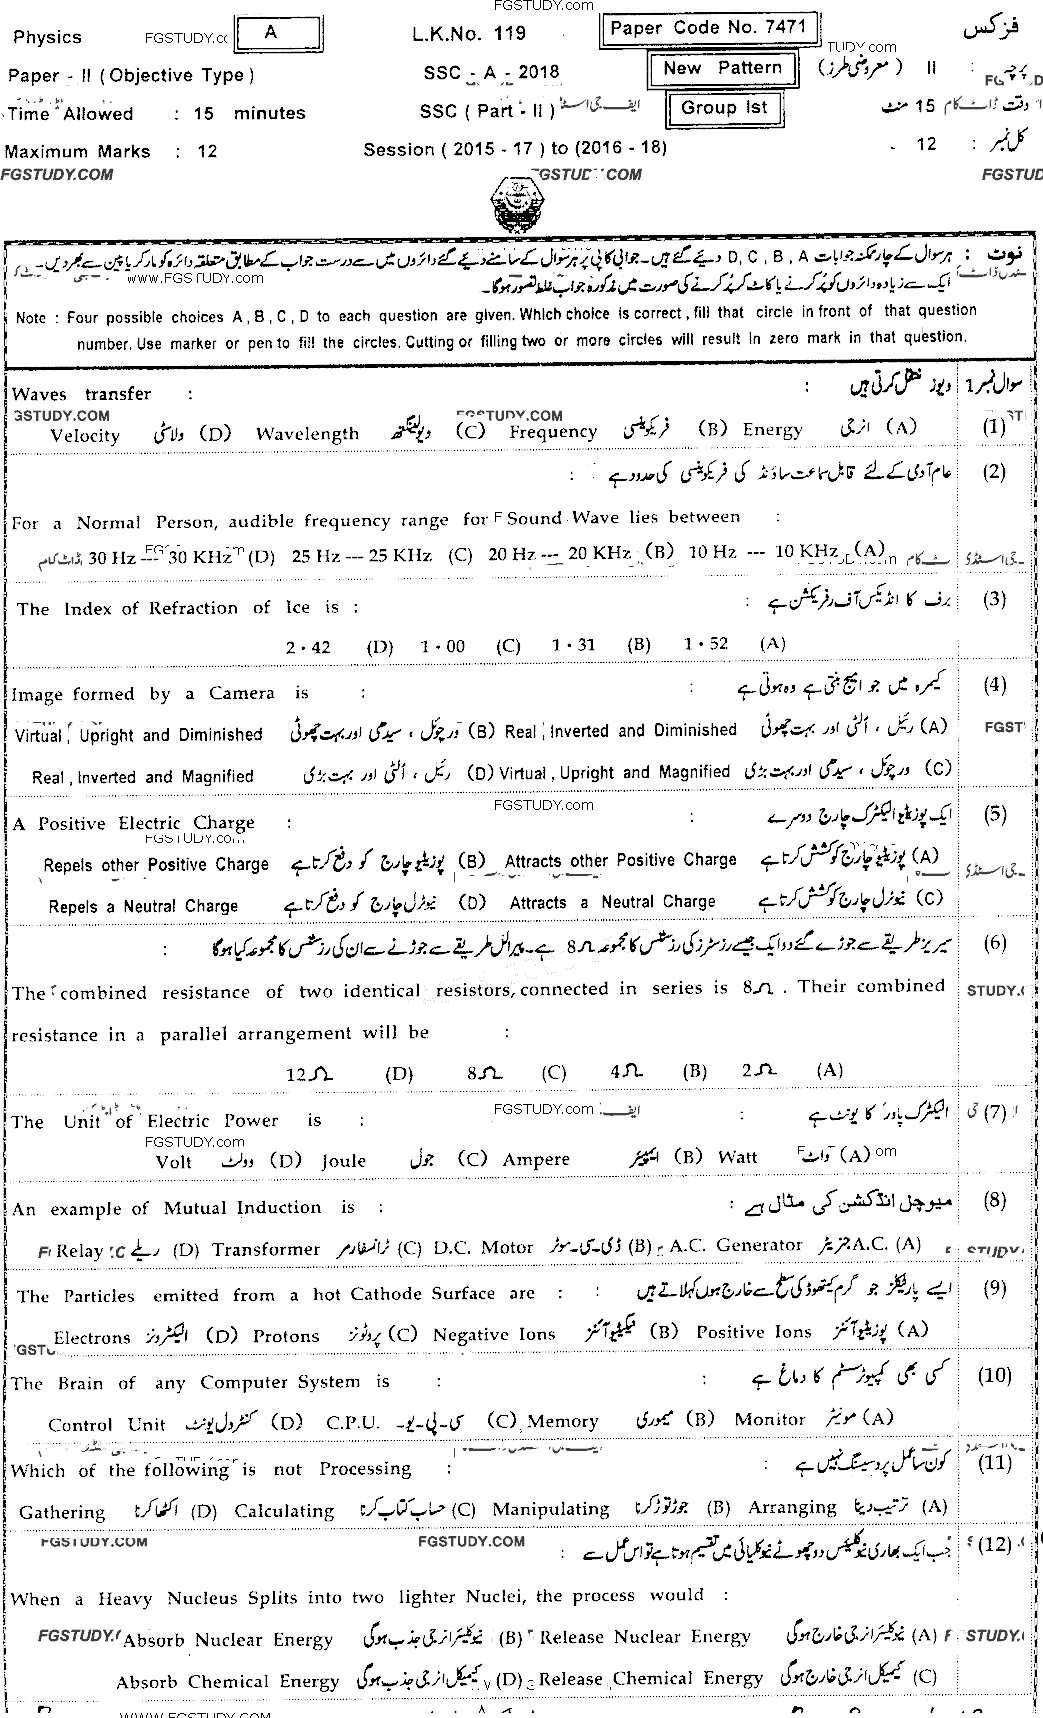 FGSTUDY.com
Physics A L.K.No. 119 Paper Code No. 7471 فزکس
Paper - II (Objective Type) SSC - A - 2018 New Pattern پرچہ : II (معروضی طرز)
Time Allowed : 15 minutes SSC (Part - II) Group Ist وقت 15 منٹ
Maximum Marks : 12 Session (2015 - 17) to (2016 - 18) کل نمبر : 12
FGSTUDY.COM
نوٹ : ہر سوال کے چار ممکنہ جوابات D, C, B, A دیئے گئے ہیں۔ جوابی کاپی پر ہر سوال کے سامنے دیئے گئے دائروں میں سے درست جواب کے مطابق متعلقہ دائرہ کو مارکر یا پین سے بھر دیں۔
www.FGSTUDY.com
ایک سے زیادہ دائروں کو پُر کرنے یا کاٹ کر پُر کرنے کی صورت میں مذکورہ جواب غلط تصور ہوگا۔
Note : Four possible choices A, B, C, D to each question are given. Which choice is correct, fill that circle in front of that question
number. Use marker or pen to fill the circles. Cutting or filling two or more circles will result in zero mark in that question.
Waves transfer : ویوز منتقل کرتی ہیں : سوال نمبر 1
(1) (A) انرجی Energy (B) فریکوئنسی Frequency (C) ویولینگتھ Wavelength (D) ولاسٹی Velocity
(2) عام آدمی کے لئے قابل سماعت ساؤنڈ کی فریکوئنسی کی حدود ہے :
For a Normal Person, audible frequency range for Sound Wave lies between :
(A) 10 Hz --- 10 KHz (B) 20 Hz --- 20 KHz (C) 25 Hz --- 25 KHz (D) 30 Hz --- 30 KHz
The Index of Refraction of Ice is : برف کا انڈیکس آف رفریکشن ہے : (3)
2.42 (D) 1.00 (C) 1.31 (B) 1.52 (A)
Image formed by a Camera is : کیمرہ میں جو امیج بنتی ہے وہ ہوتی ہے : (4)
(A) رئیل ، اُلٹی اور بہت چھوٹی Real, Inverted and Diminished (B) ورچوئل ، سیدھی اور بہت چھوٹی Virtual, Upright and Diminished
(C) ورچوئل ، سیدھی اور بہت بڑی Virtual, Upright and Magnified (D) رئیل ، اُلٹی اور بہت بڑی Real, Inverted and Magnified
FGSTUDY.com
A Positive Electric Charge : ایک پوزیٹیو الیکٹرک چارج دوسرے : (5)
(A) پوزیٹیو چارج کو کشش کرتا ہے Attracts other Positive Charge (B) پوزیٹیو چارج کو دفع کرتا ہے Repels other Positive Charge
(C) نیوٹرل چارج کو کشش کرتا ہے Attracts a Neutral Charge (D) نیوٹرل چارج کو دفع کرتا ہے Repels a Neutral Charge
(6) سیریز طریقے سے جوڑے گئے دو ایک جیسے رزسٹرز کی رزسٹنس کا مجموعہ 8Ω ہے۔ پیرالل طریقے سے جوڑنے سے ان کی رزسٹنس کا مجموعہ کیا ہوگا :
The combined resistance of two identical resistors, connected in series is 8Ω . Their combined
resistance in a parallel arrangement will be :
12Ω (D) 8Ω (C) 4Ω (B) 2Ω (A)
The Unit of Electric Power is : FGSTUDY.com الیکٹرک پاور کا یونٹ ہے : (7)
FGSTUDY.com
(A) واٹ Watt (B) ایمپیئر Ampere (C) جول Joule (D) وولٹ Volt
An example of Mutual Induction is : میوچل انڈکشن کی مثال ہے : (8)
(A) A.C. جنریٹر A.C. Generator (B) ڈی-سی-موٹر D.C. Motor (C) ٹرانسفارمر Transformer (D) ریلے Relay
The Particles emitted from a hot Cathode Surface are : ایسے پارٹیکلز جو گرم کیتھوڈ کی سطح سے خارج ہوں کہلاتے ہیں : (9)
(A) پوزیٹیو آئنز Positive Ions (B) نیگیٹیو آئنز Negative Ions (C) پروٹونز Protons (D) الیکٹرونز Electrons
The Brain of any Computer System is : کسی بھی کمپیوٹر سسٹم کا دماغ ہے : (10)
(A) مونیٹر Monitor (B) میموری Memory (C) سی-پی-یو- C.P.U. (D) کنٹرول یونٹ Control Unit
Which of the following is not Processing : کون سا عمل پروسیسنگ نہیں ہے : (11)
(A) ترتیب دینا Arranging (B) جوڑ توڑ کرنا Manipulating (C) حساب کتاب کرنا Calculating (D) اکٹھا کرنا Gathering
FGSTUDY.COM FGSTUDY.COM
(12) جب ایک بھاری نیوکلیئس دو چھوٹے نیوکلیائی میں تقسیم ہوتا ہے تو اس عمل سے :
When a Heavy Nucleus Splits into two lighter Nuclei, the process would :
(A) نیوکلیئر انرجی خارج ہوگی Release Nuclear Energy (B) نیوکلیئر انرجی جذب ہوگی Absorb Nuclear Energy
(C) کیمیکل انرجی خارج ہوگی Release Chemical Energy (D) کیمیکل انرجی جذب ہوگی Absorb Chemical Energy
WWW.FGSTUDY.COM